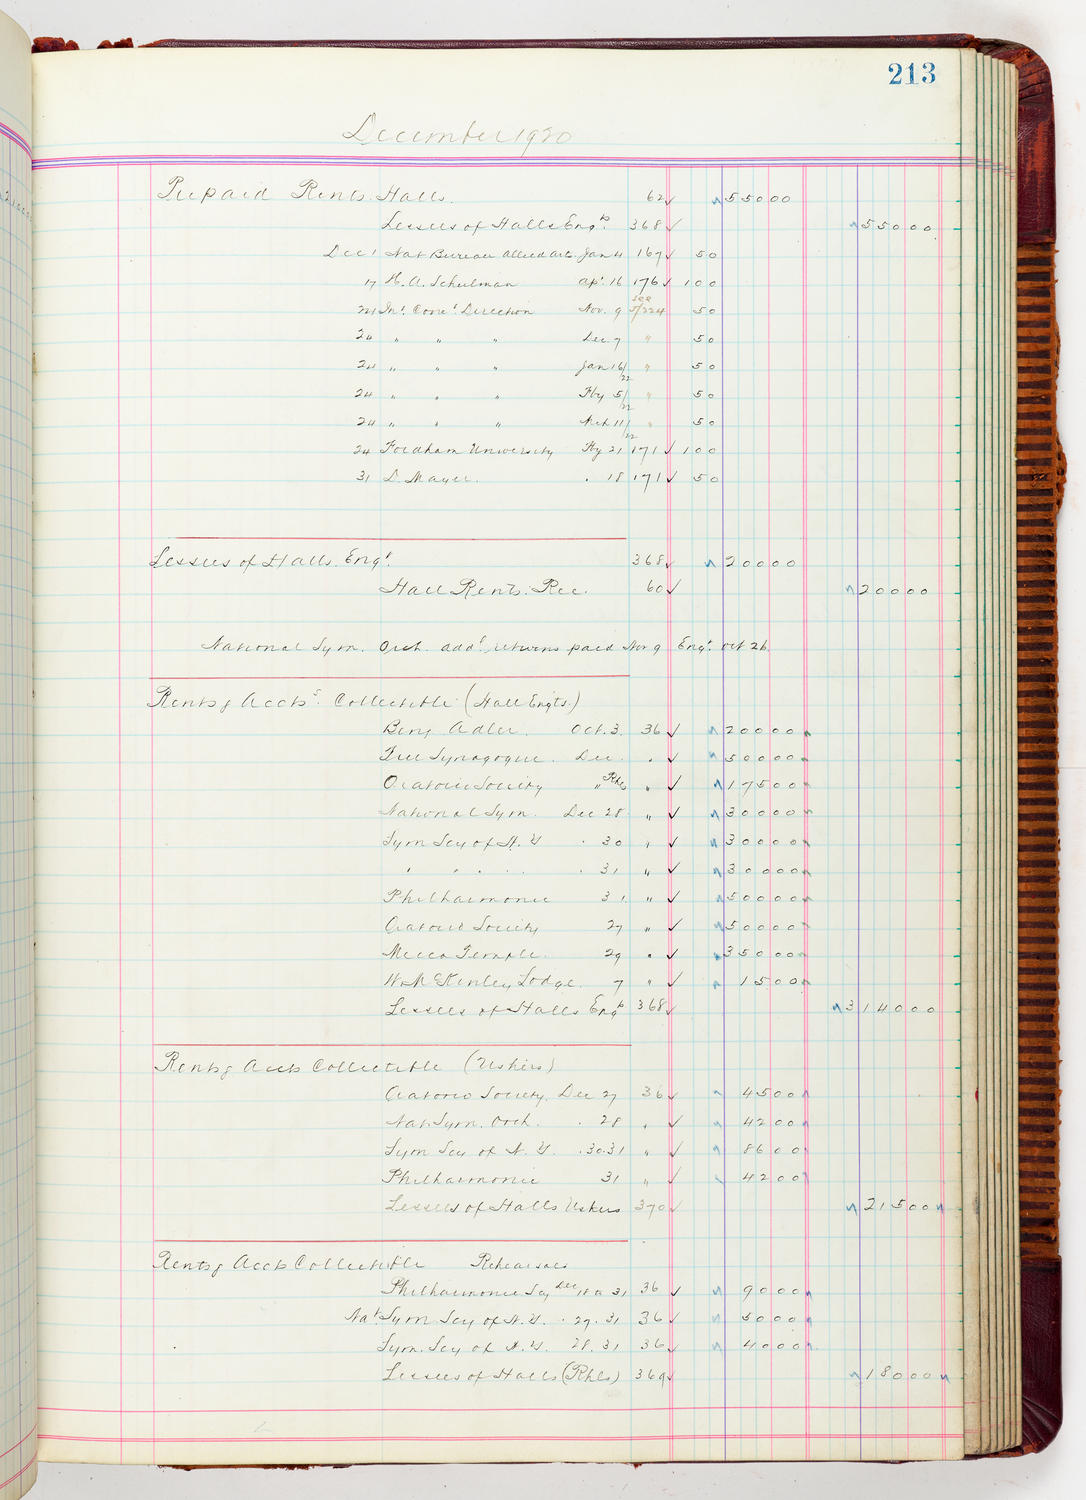 213
December 1920
Prepaid Rents. Halls. 62 55000
Lessees of Halls Engts 368 55000
Dec 1 Nat Bureau allied arts. Jan 4 167 50
17 H. A. Schulman Apl. 16 176 100
see
24 Int. Corre. Direction Nov. 9 5/224 50
24 " " " Dec 7 " 50
24 " " " Jan 16/22 " 50
24 " " " Fby 5/22 " 50
24 " " " Mch 11/22 " 50
24 Fordham University Fby 21 171 100
31 D. Mayer. " 18 171 50
Lessees of Halls. Engt. 368 20000
Hall Rents. Rec. 60 20000
National Sym. Orch. add'l returns paid Nov 9 Engt. Oct 26
Rents & Accts. Collectible (Hall Engts.)
Benj Adler. Oct. 3. 36 20000
Free Synagogue. Dec. " 50000
Oratorio Society " Rhls " 17500
National Sym. Dec 28 " 30000
Sym Scy of N. Y. " 30 " 30000
" " " " " 31 " 30000
Philharmonic 31 " 50000
Oratorio Society 27 " 50000
Mecca Temple. 29 " 35000
Wm McKinley Lodge. 7 " 1500
Lessees of Halls Engts 368 314000
Rents & Accts Collectible (Ushers)
Oratorio Society. Dec 27 36 4500
Nat. Sym. Orch. . 28 " 4200
Sym Scy of N. Y. . 30.31 " 8600
Philharmonic 31 " 4200
Lessees of Halls Ushers 370 21500
Rents & Accts Collectible Rehearsals
Philharmonic Scy Dec 18 a 31 36 9000
Nat Sym Scy of N. Y. . 29. 31 36 5000
Sym. Scy of N. Y. 28. 31 36 4000
Lessees of Halls (Rhls) 369 18000